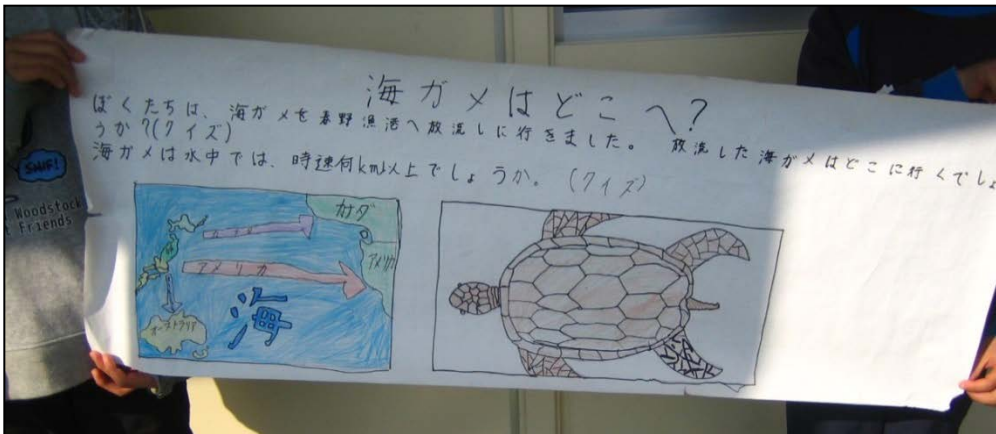 海ガメはどこへ?
ぼくたちは、海ガメを春野漁港へ放流しに行きました。 放流した海ガメはどこに行くでしょ
うか?(クイズ)
海ガメは水中では、時速何km以上でしょうか。(クイズ)
カナダ
アメリカ
アメリカ
海
オーストラリア
SNIF!
Woodstock
Friends